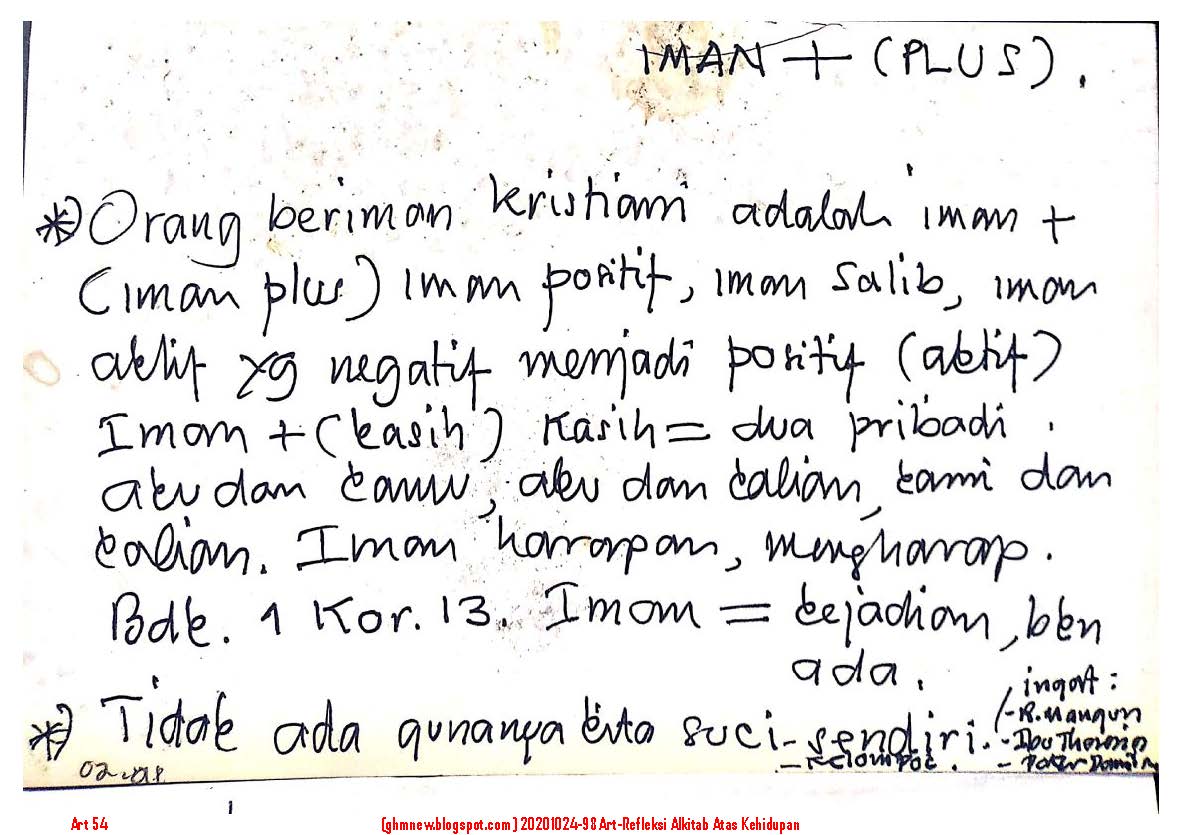 IMAN + (PLUS).
*) Orang beriman kristiani adalah iman +
(iman plus) iman positif, iman Salib, iman
aktif yg negatif menjadi positif (aktif)
Iman + (kasih) Kasih = dua pribadi.
aku dan kamu, aku dan kalian, kami dan
kalian. Iman harapan, mengharap.
Bdk. 1 Kor. 13. Iman = kejadian, ben
ada.
*) Tidak ada gunanya kita suci - sendiri.
- kelompok.
ingat:
- R. Mangun
- Ibu
- Pater
1
Art 54
(ghmnew.blogspot.com) 20201024-98 Art-Refleksi Alkitab Atas Kehidupan